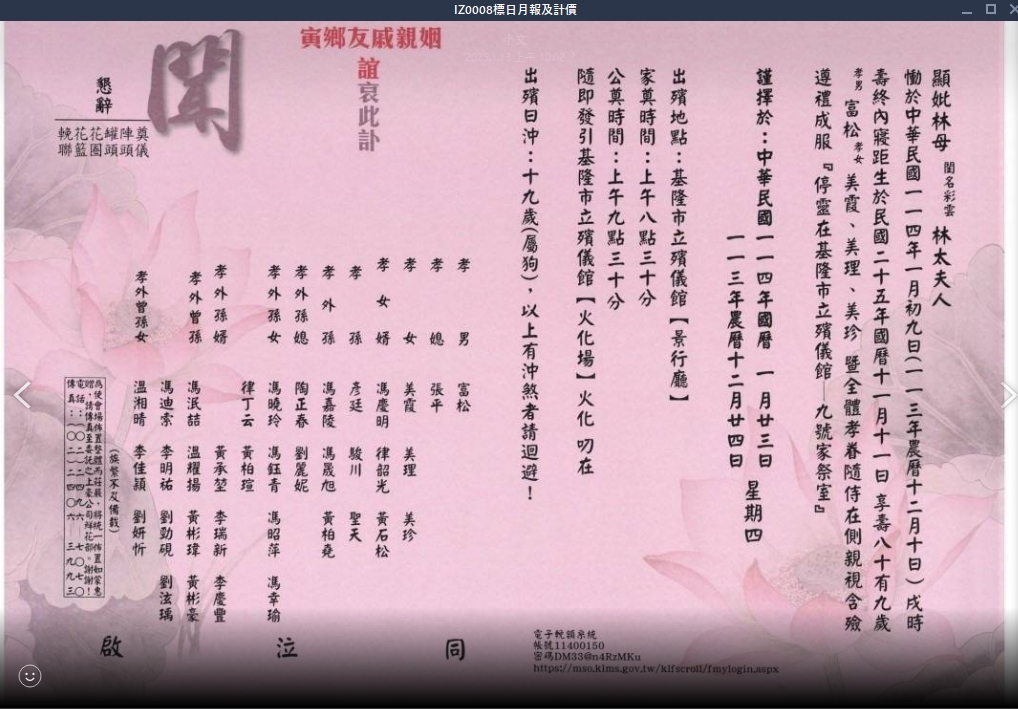 IZ0008標日月報及計價
顯妣林母 閨名彩雲 林太夫人
慟於中華民國一一四年一月初九日(一一三年農曆十二月十日)戌時
壽終內寢距生於民國二十五年國曆十一月十一日 享壽八十有九歲
孝男 富松 孝女 美霞、美理、美珍 暨全體孝眷隨侍在側親視含殮
遵禮成服『停靈在基隆市立殯儀館—九號家祭室』
謹擇於：中華民國一一四年國曆 一月廿三日 星期四
一一三年農曆十二月廿四日
出殯地點：基隆市立殯儀館【景行廳】
家奠時間：上午八點三十分
公奠時間：上午九點三十分
隨即發引基隆市立殯儀館【火化場】火化 叨在
出殯日沖：十九歲(屬狗)，以上有沖煞者請迴避！
姻親戚友鄉寅
誼哀此訃
聞
懇辭
奠儀
陣頭
罐頭
花圈
花籃
輓聯
孝男 富松
孝媳 張平
孝女 美霞 美理 美珍
孝女婿 馮慶明 律韶光 黃石松
孝孫 彥廷 駿川 聖天
孝外孫 馮嘉陵 馮晟旭 黃柏堯
孝外孫媳 陶正春 劉麗妮
孝外孫女 馮曉玲 馮鈺青 馮昭萍 馮幸瑜
律丁云 黃柏瑄
孝外孫婿 黃承堃 李瑞新 李慶豐
孝外曾孫 馮泯喆 溫耀揚 黃彬瑋 黃彬豪
馮迪索 李明祐 劉勁硯 劉浤瑀
孝外曾孫女 溫湘晴 李佳穎 劉妍忻
(族繁不及備載)
為使會場佈置整體而莊嚴，將統一佈置如蒙惠
贈，請傳真至委託之上豪公司鮮花部。謝謝！
電話：(〇二)二四九六—七〇七〇
傳真：(〇二)二四〇六—三九九三
同 泣 啟
電子輓額系統
帳號11400150
密碼DM33@n4RzMKu
https://mso.klms.gov.tw/klfscroll/fmylogin.aspx